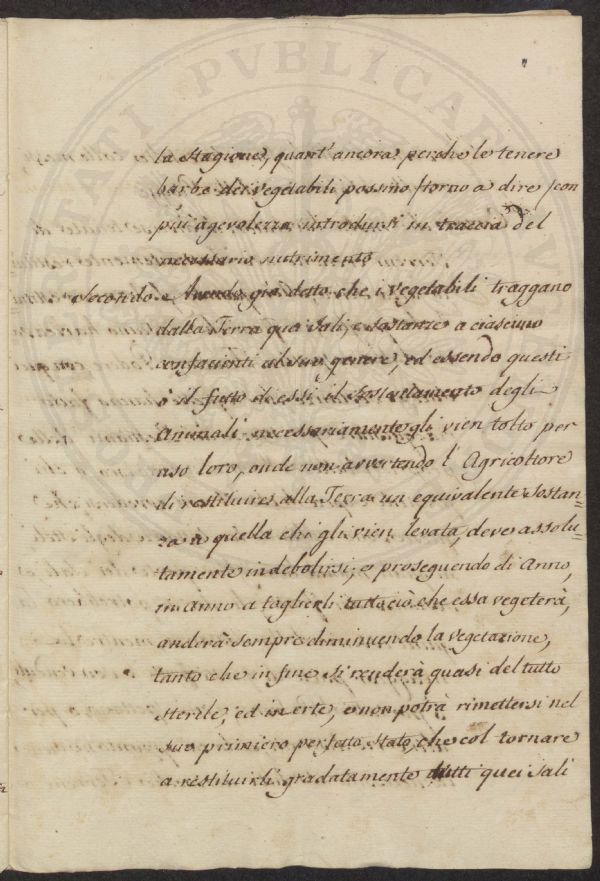 la stagione, quant' ancora perche le tenere
barbe dei vegetabili possino /torno a dire/ con
più agevolezza introdursi in traccia del
necessario nutrimento
Secondo e Avendo già detto che i vegetabili traggano
dalla Terra quei sali, e sostanze a ciascuno
confacienti al suo genere, ed essendo questi
o il frutto di essi il sostentamento degli
Animali necessariamente gli vien tolto per
uso loro, onde non avvertendo l' Agricoltore
di restituire alla Terra un equivalente sostan-
za a quella che gli vien levata, deve assolu-
tamente indebolirsi, e proseguendo di Anno,
in Anno a toglierli tutto ciò che essa vegeterà,
anderà sempre diminuendo la vegetazione,
tanto che in fine si renderà quasi del tutto
sterile, ed inerte, e non potrà rimettersi nel
suo primiero perfetto stato, che col tornare
a restituirli gradatamente tutti quei sali